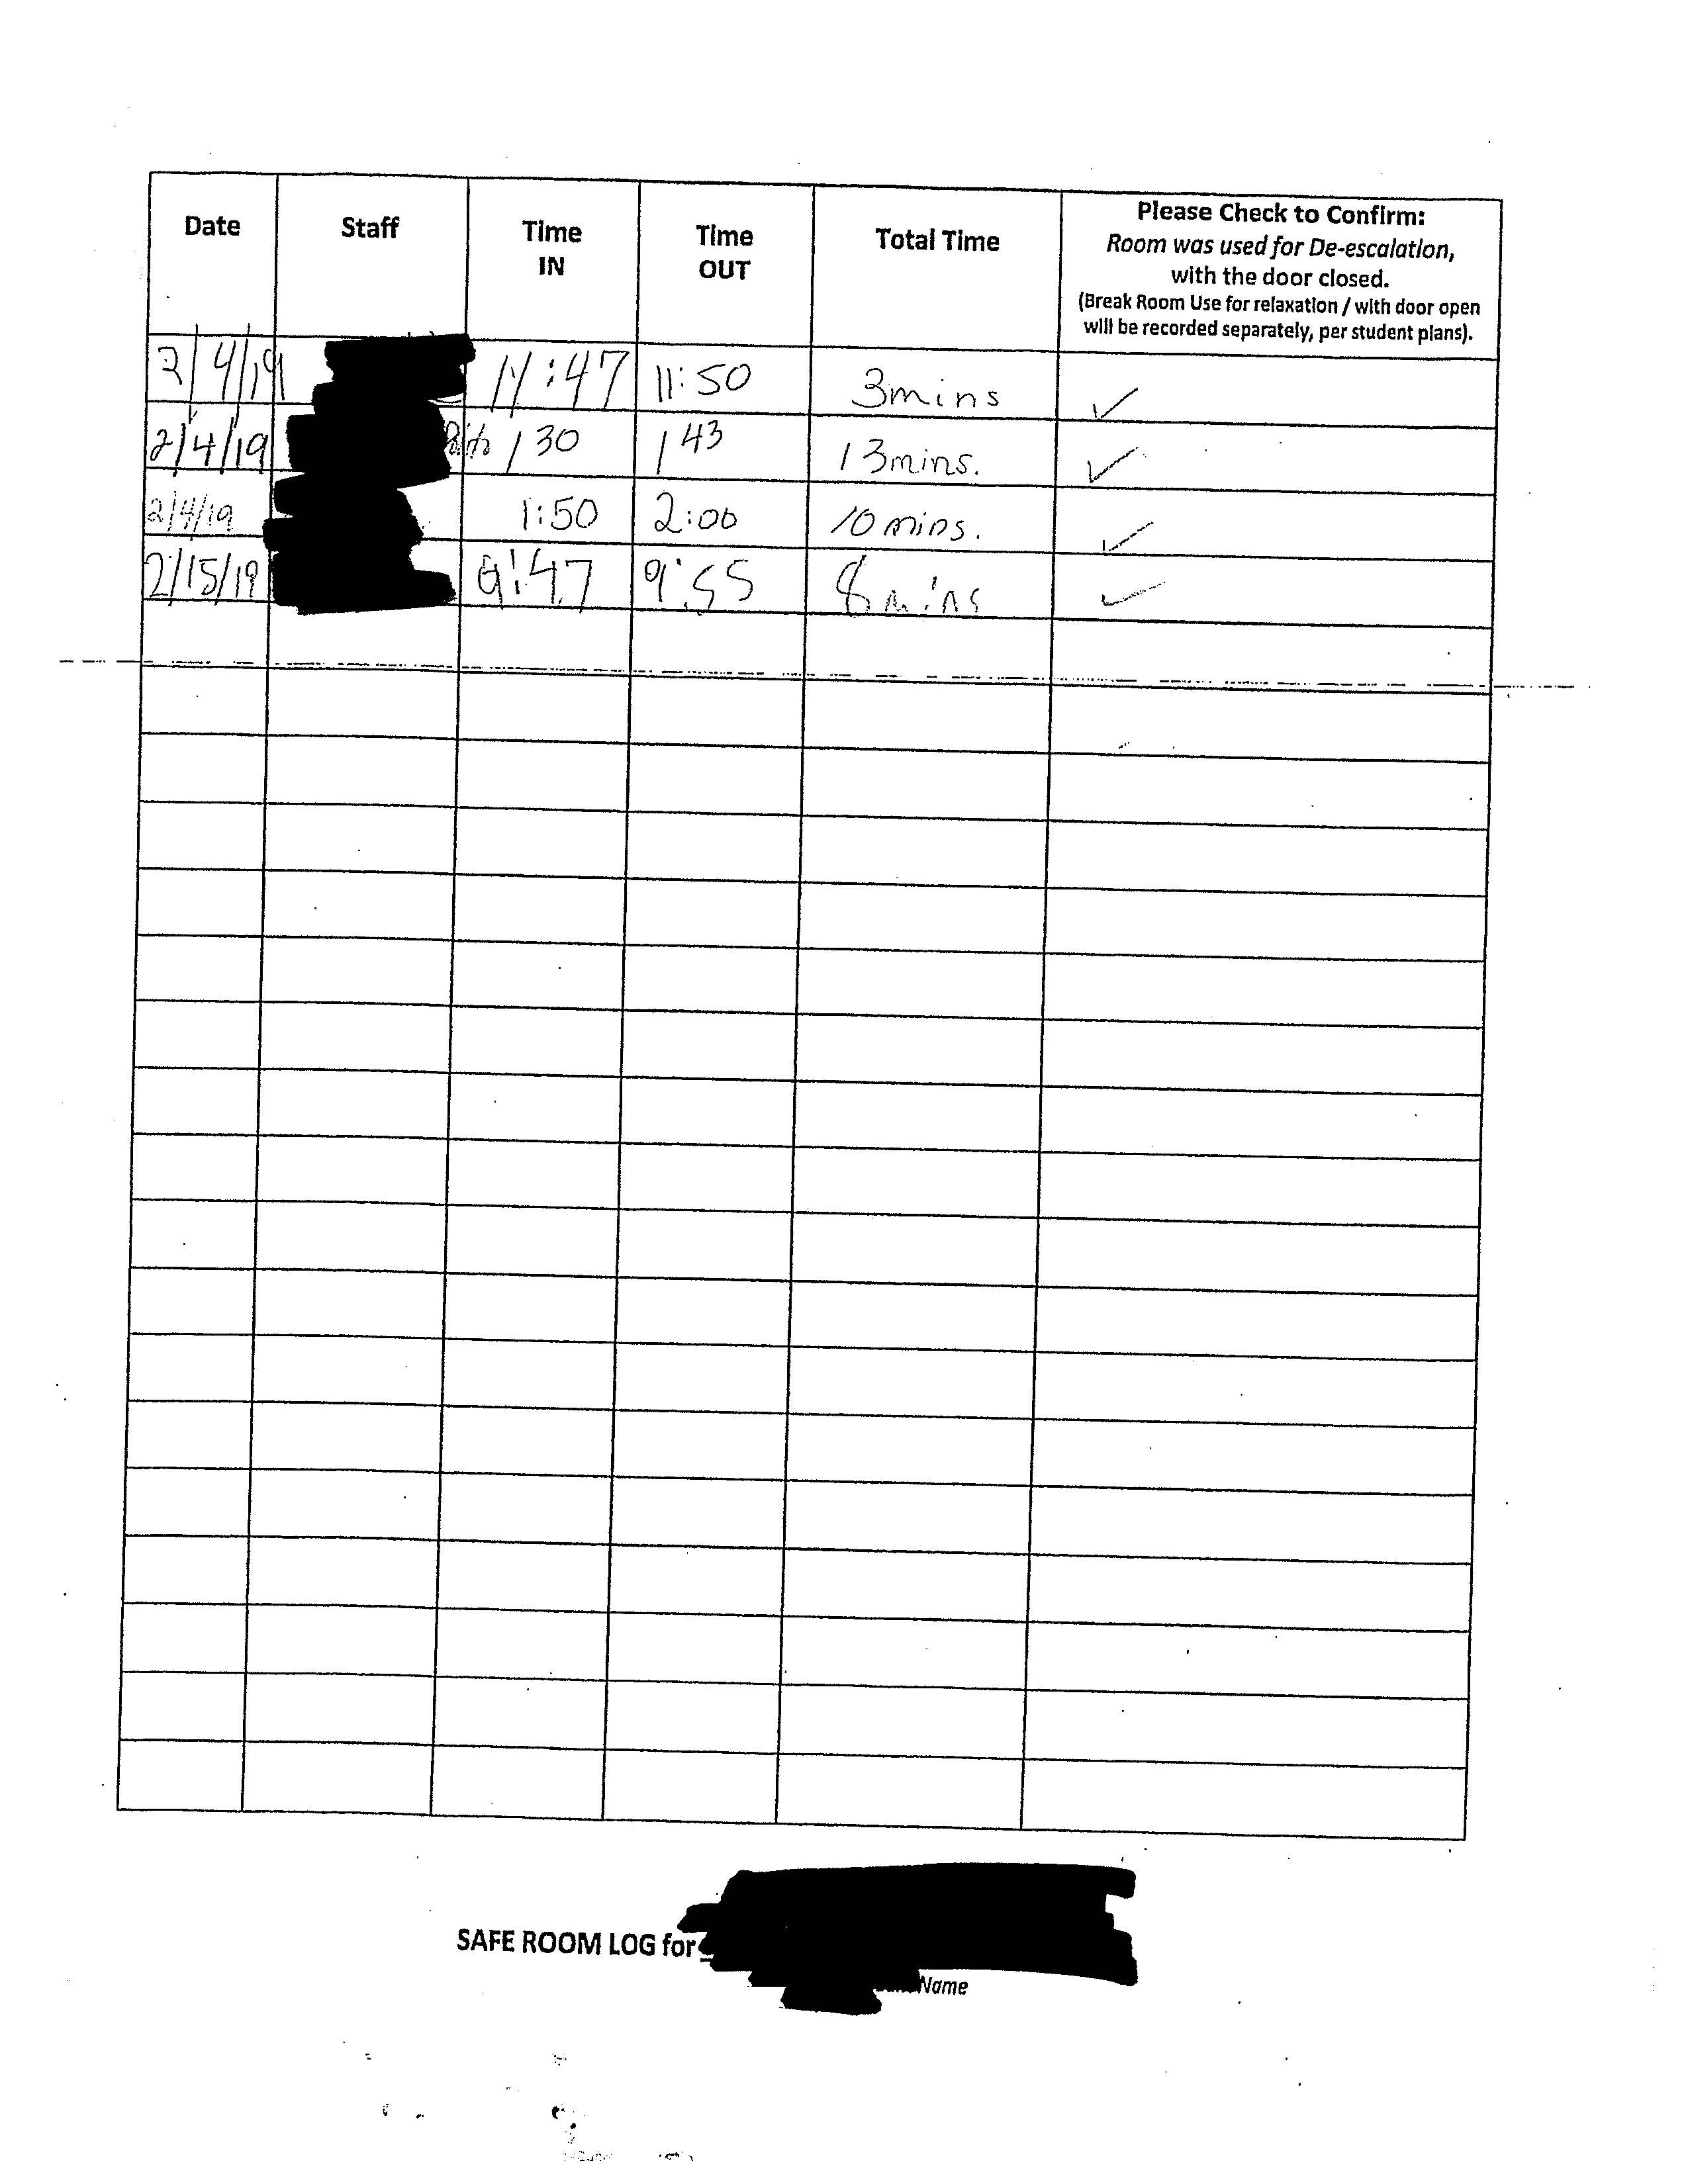 Date Staff Time IN Time OUT Total Time Please Check to Confirm:
Room was used for De-escalation,
with the door closed.
(Break Room Use for relaxation / with door open
will be recorded separately, per student plans).
2/4/19 11:47 11:50 3mins ✓
2/4/19 1 30 1 43 13mins. ✓
2/4/19 1:50 2:00 10 mins. ✓
2/15/19 9:47 9:55 8 mins ✓
SAFE ROOM LOG for
Name